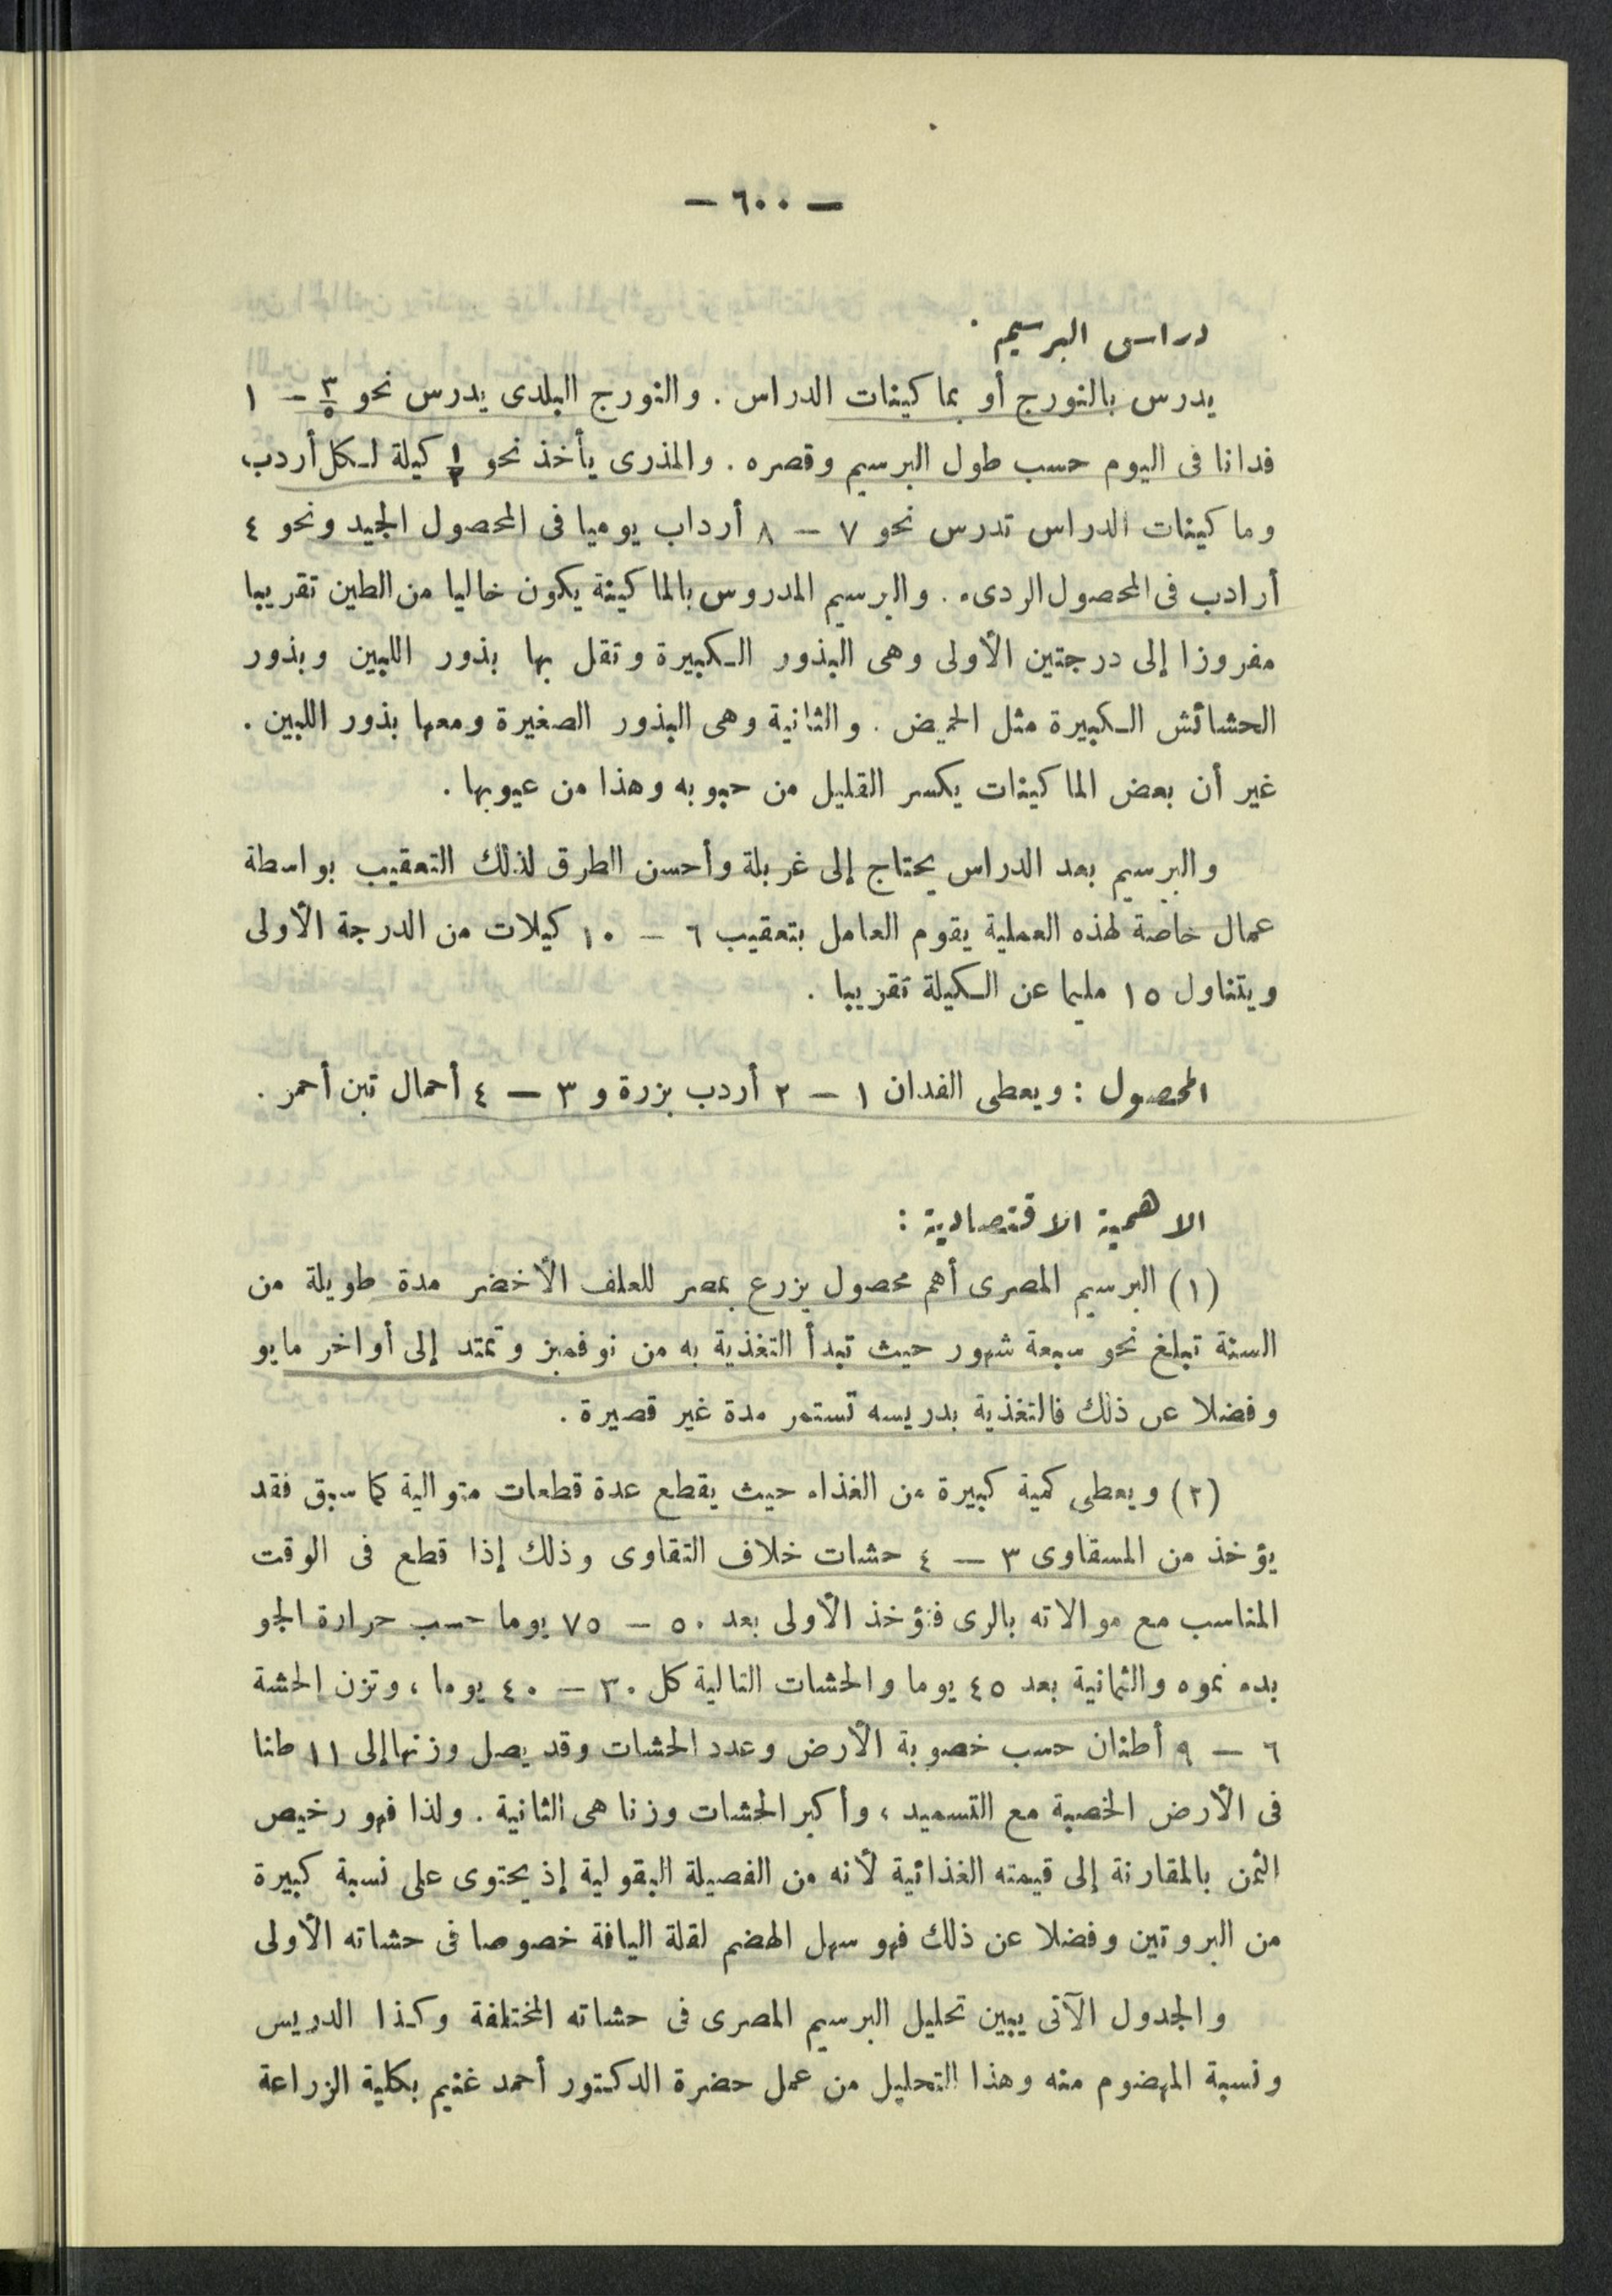 — ٦٠٠ —
دراس البرسيم .
يدرس بالنورج أو بماكينات الدراس . والنورج البلدى يدرس نحو ٣/٥ — ١
فدانا فى اليوم حسب طول البرسيم وقصره . والمذرى يأخذ نحو ١/٢ كيلة لكل أردب
وماكينات الدراس تدرس نحو ٧ — ٨ أرداب يوميا فى المحصول الجيد ونحو ٤
أرادب فى المحصول الردىء . والبرسيم المدروس بالماكينة يكون خاليا من الطين تقريبا
مفروزا إلى درجتين الأولى وهى البذور الكبيرة وتقل بها بذور اللبين وبذور
الحشائش الكبيرة مثل الحميض . والثانية وهى البذور الصغيرة ومعها بذور اللبين .
غير أن بعض الماكينات يكسر القليل من حبوبه وهذا من عيوبها .
والبرسيم بعد الدراس يحتاج إلى غربلة وأحسن الطرق لذلك التعقيب بواسطة
عمال خاصة لهذه العملية يقوم العامل بتعقيب ٦ — ١٠ كيلات من الدرجة الأولى
ويتناول ١٥ مليما عن الكيلة تقريبا .
المحصول : ويعطى الفدان ١ — ٢ أردب بزرة و ٣ — ٤ أحمال تبن أحمر .
الاهمية الاقتصادية :
(١) البرسيم المصرى أهم محصول يزرع بمصر للعلف الأخضر مدة طويلة من
السنة تبلغ نحو سبعة شهور حيث تبدأ التغذية به من نوفمبر وتمتد إلى أواخر مايو
وفضلا عن ذلك فالتغذية بدريسه تستمر مدة غير قصيرة .
(٢) ويعطى كمية كبيرة من الغذاء حيث يقطع عدة قطعات متوالية كما سبق فقد
يؤخذ من المسقاوى ٣ — ٤ حشات خلاف التقاوى وذلك إذا قطع فى الوقت
المناسب مع موالاته بالرى فتؤخذ الأولى بعد ٥٠ — ٧٥ يوما حسب حرارة الجو
بدء نموه والثانية بعد ٤٥ يوما والحشات التالية كل ٣٠ — ٤٠ يوما ، وتزن الحشة
٦ — ٩ أطنان حسب خصوبة الأرض وعدد الحشات وقد يصل وزنها إلى ١١ طنا
فى الأرض الخصبة مع التسميد ، وأكبر الحشات وزنا هى الثانية . ولذا فهو رخيص
الثمن بالمقارنة إلى قيمته الغذائية لأنه من الفصيلة البقولية إذ يحتوى على نسبة كبيرة
من البروتين وفضلا عن ذلك فهو سهل الهضم لقلة اليافة خصوصا فى حشاته الأولى
والجدول الآتى يبين تحليل البرسيم المصرى فى حشاته المختلفة وكذا الدريس
ونسبة المهضوم منه وهذا التحليل من عمل حضرة الدكتور أحمد غنيم بكلية الزراعة